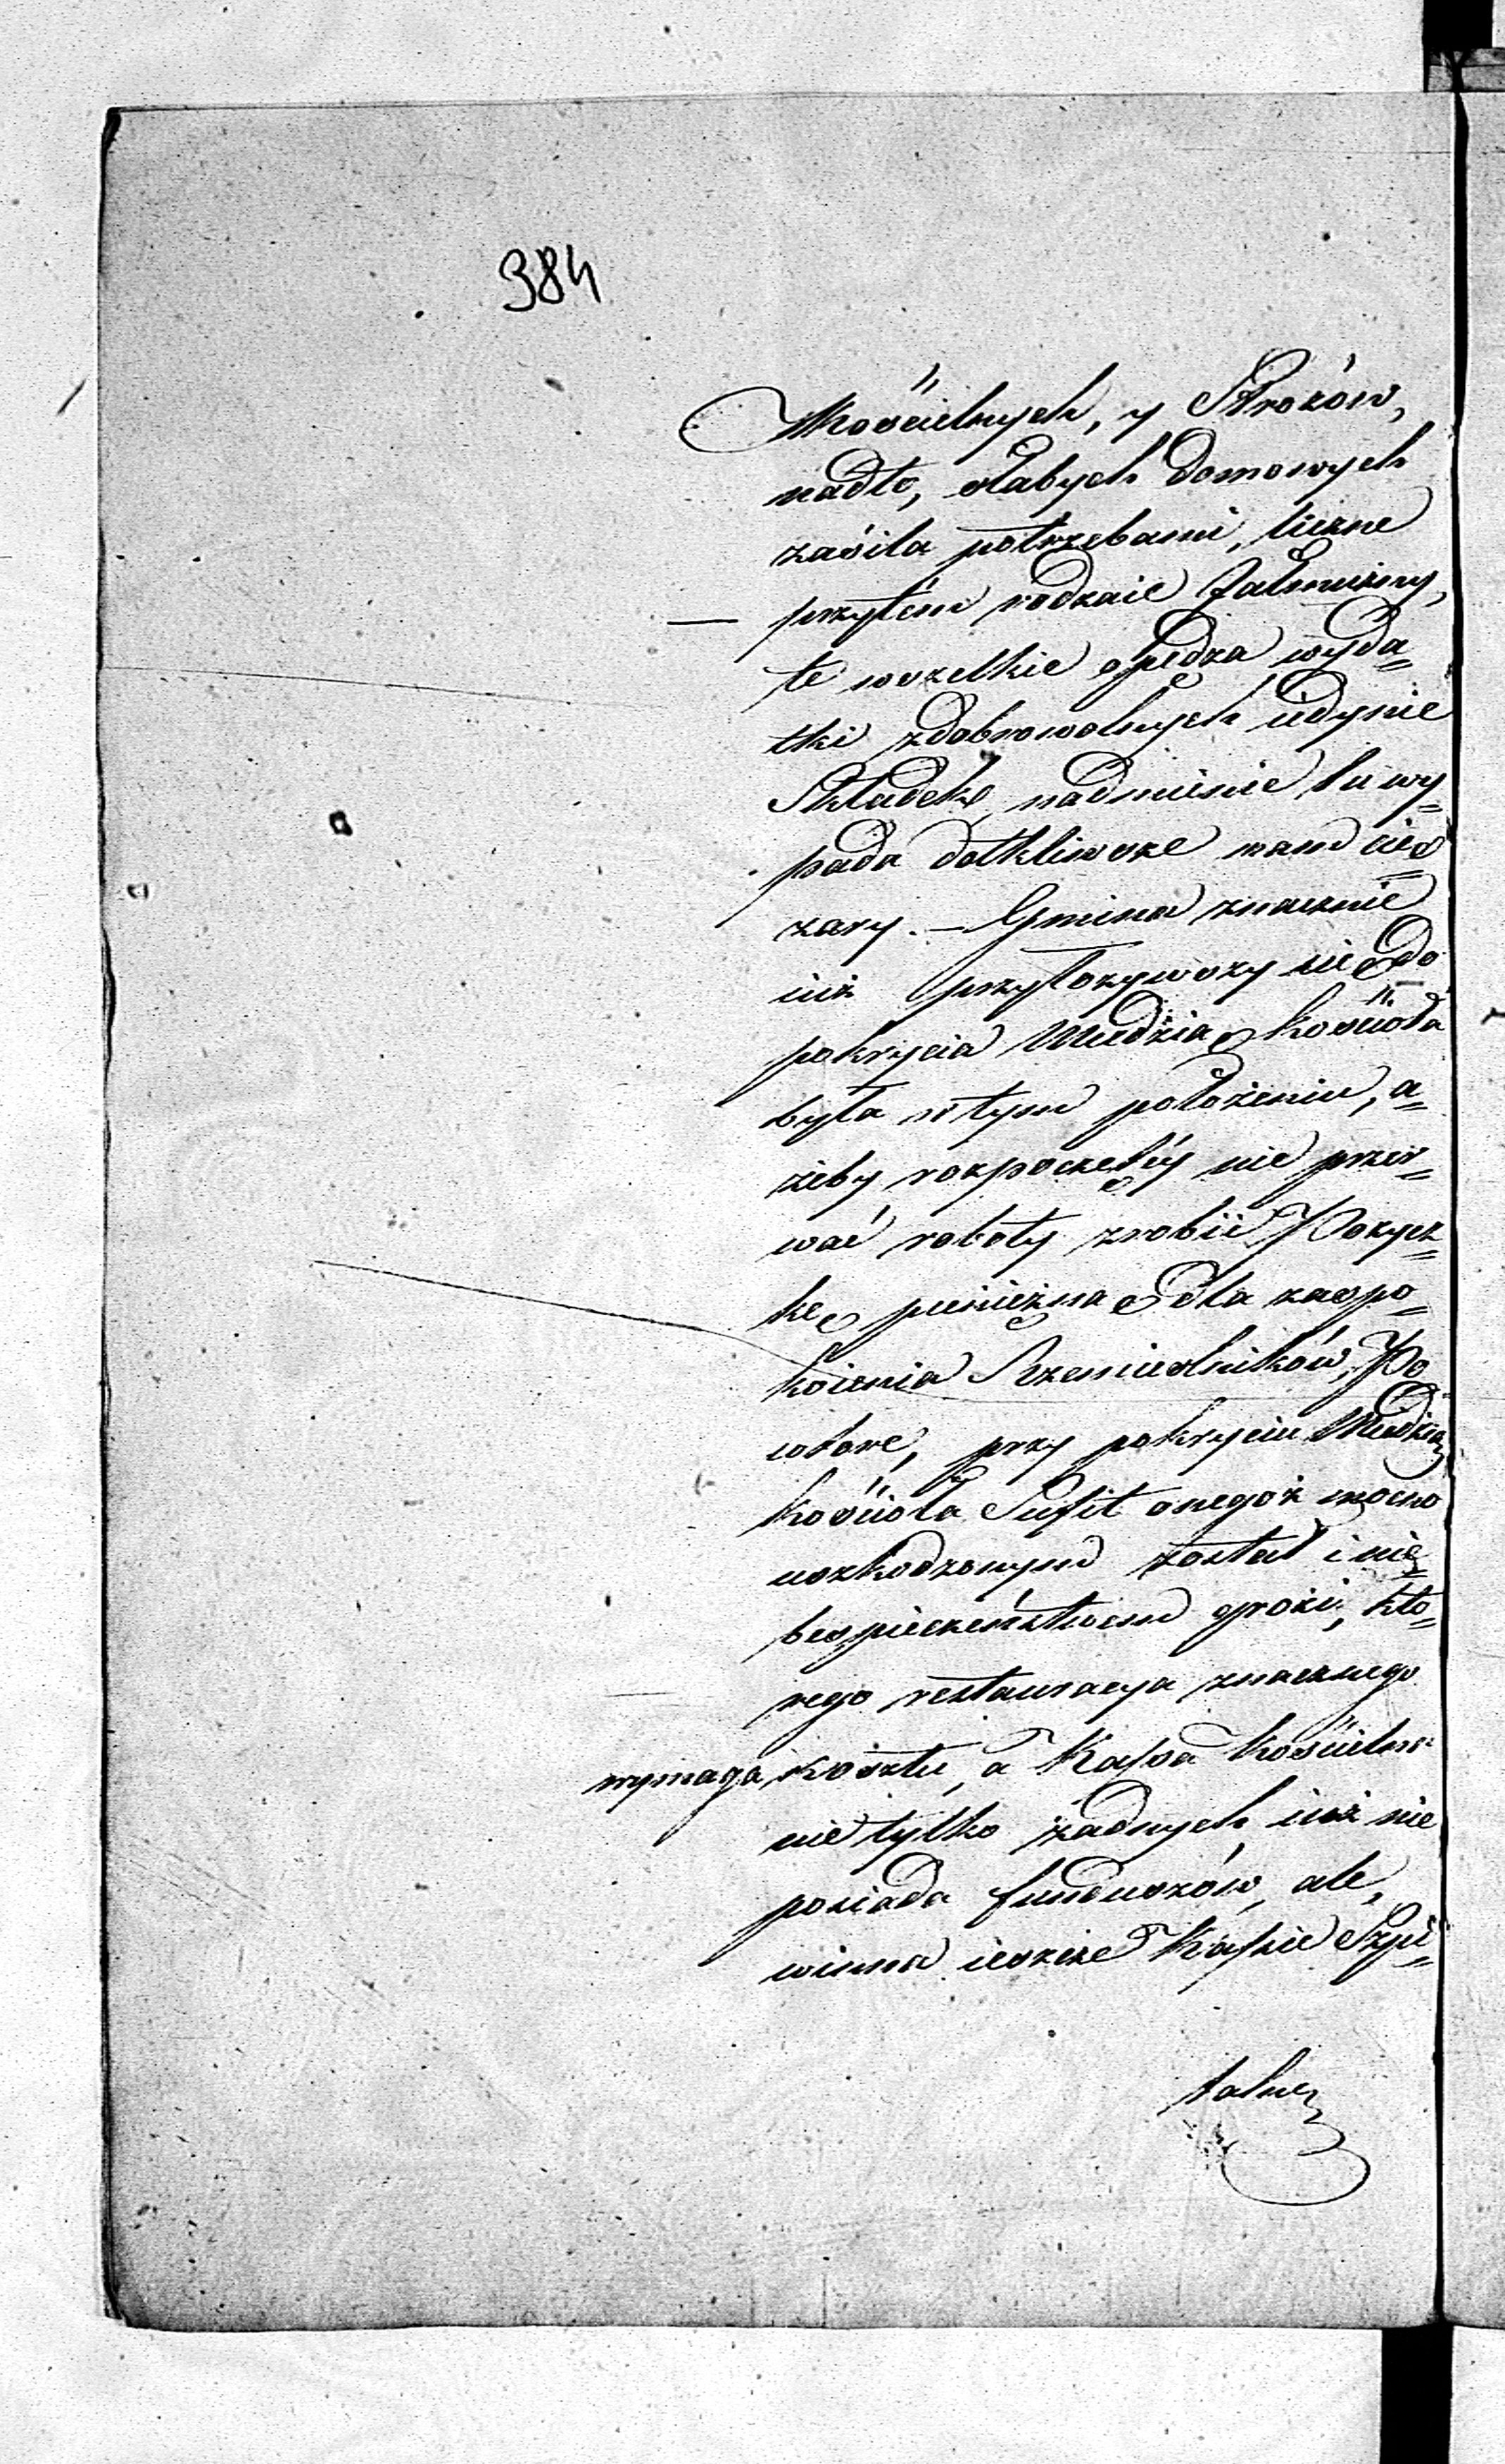 384
Kościelnych, y Stróżów,
nadto, słabych domowych
zasila potrzebami, liczne
przytém rodzaie Jałmużny,
te wszelkie opędza wyda=
tki zdobrowolnych iedynie
Składek, nadmienie tu wy=
pada dotkliwsze nam cię=
żary. – Gmina znacznie
iuż przyłożywszy się do
pokrycia Miedzią Kościoła
była w tym położeniu, a=
żeby rozpoczętéy nie przer=
wać roboty zrobić Pożycz=
kę pieniężną dla zaspo=
koienia Rzemieślników, Po
wtóre, przy pokryciu Miedzią
Kościoła Sufit onegoż mocno
uszkodzonym został i nie=
bespieczeństwem grozi, któ=
rego restauracya znacznego
wymaga kosztu, a Kassa Kościelna
nie tylko żadnych iuż nie
posiada funduszów, ale,
winna ieszcze Kassie Szpi=
talney